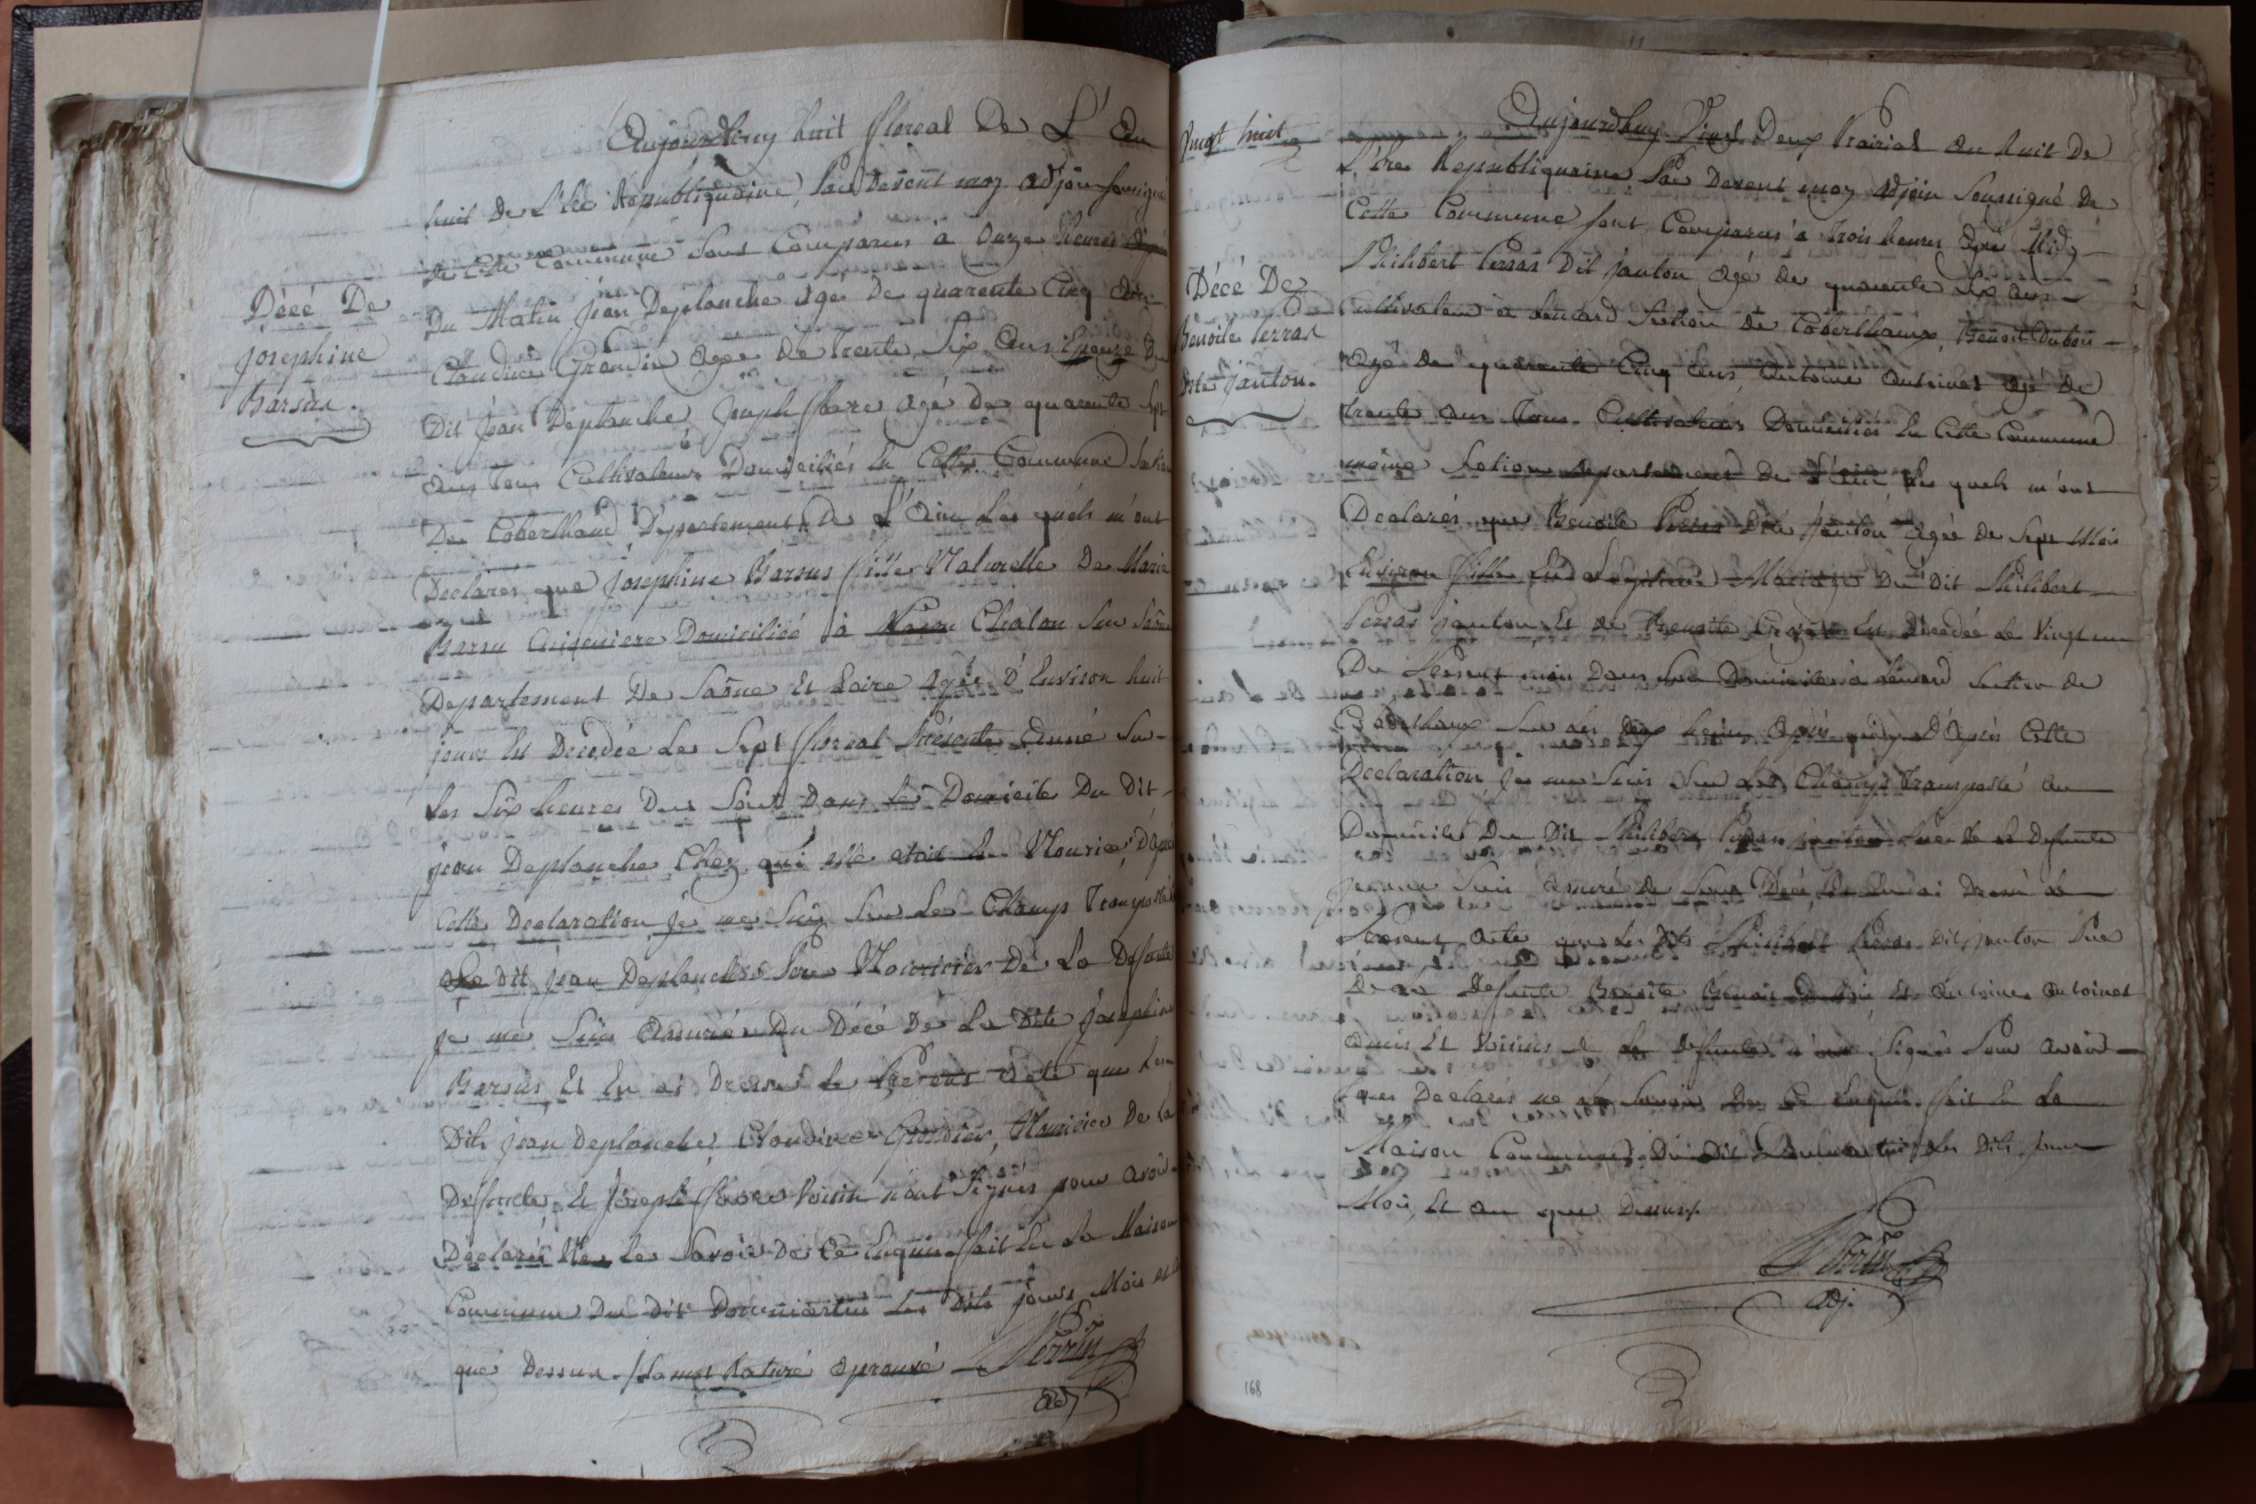 Aujourdhuy huit floreal De L'an
huit De L'Ere Republiquaine, Par Devent moy adjoin soussigné
De Cette Commune sont Comparus à Onze heures
Du Matin jean Deplanche agé De quarente Cinq ans
Décé De
josephine
Barsus.
Claudine Grandin agée de trente Six ans Epouze Du
Dit jean Deplanche, joseph favre agé De quarente Sept
ans tous Cultivateurs Domiciliés En Cette Commune Section
De Coberthoud Département De L'Ain Les quels m'ont
Declarés que josephine Barsus fille Naturelle De Marie
Barsu Cuiseniere Domiciliée à Chalon Sur Saône
Departement De Saône Et Loire agée D'Environ huit
jours Est Décédée Le Sept floreal Présente année Sur
Les Six heures Du Soir Dans Le Domicile Du Dit
jean Deplanche Chez qui elle etait En Nourice, D'après
Cette Declaration je me Suis Sur Le Champ Transporté
Dit jean Deplanche Pere Nouricier De La Défunte
je me Suis assurée Du Décé De La Dite josephine
Barsus Et En ai Dressé Le Present acte que Les
Dits jean Deplanche, Claudine Grandin, Nourice De La
Défunte, Et joseph favre Voisin n'ont Signés pour avoir
Declarés Ne Le Savoir De Ce Enquis fait En La Maison
Commune Du Dit Dommartin Les Dits jours Mois et an
que Dessus. /. Le mot Raturé aprouvé Perrin
adj
Vingt huit
Aujourdhuy Vingt Deux Prairial an huit De
L'Ere Republiquaine Par Devent moy adjoin Soussigné De
Cette Commune sont Comparus à trois heures après Midy
Décé De
Benoite Perras
Dite janton.
Philibert Perras Dit janton agé de quarente Six ans
Cultivateur à Section De Coberthoux, Benoit Dubois
agé De quarente Cinq ans, antoine antoinet agé De
trente ans Tous Cultivateurs Domiciliés En Cette Commune
même Section Departement De L'ain Les quels m'ont
Declarés que Benoite Perras Dite janton agée De Sept Mois
Environ fille En Légitime Mariage Du Dit Philibert
Perras janton Et De Benoite Est Décédée Le Vingt un
Du Present mois Dans Son Domicile à Section De
Coberthoux Sur Les Dix heures Après midy D'Après Cette
Declaration je me Suis Sur Le Champ transporté au
Domicile Du Dit Philibert Perras janton Père De La Defunte
je me Suis assuré De Son Décé, Et En ai Dressé Le
Present Acte que Les Dits Philibert Perras Dit janton Père
De La Defunte Benoite Benoit Dubois Et antoine antoinet
amis Et Voisins De La Defunte n'ont Signés Pour avoir
Declarés ne Le Savoir De Ce Enquis. fait En La
Maison Commune Du Dit Dommartin Les Dits jour
Mois, Et an que Dessus.
Perrin
adj.
168